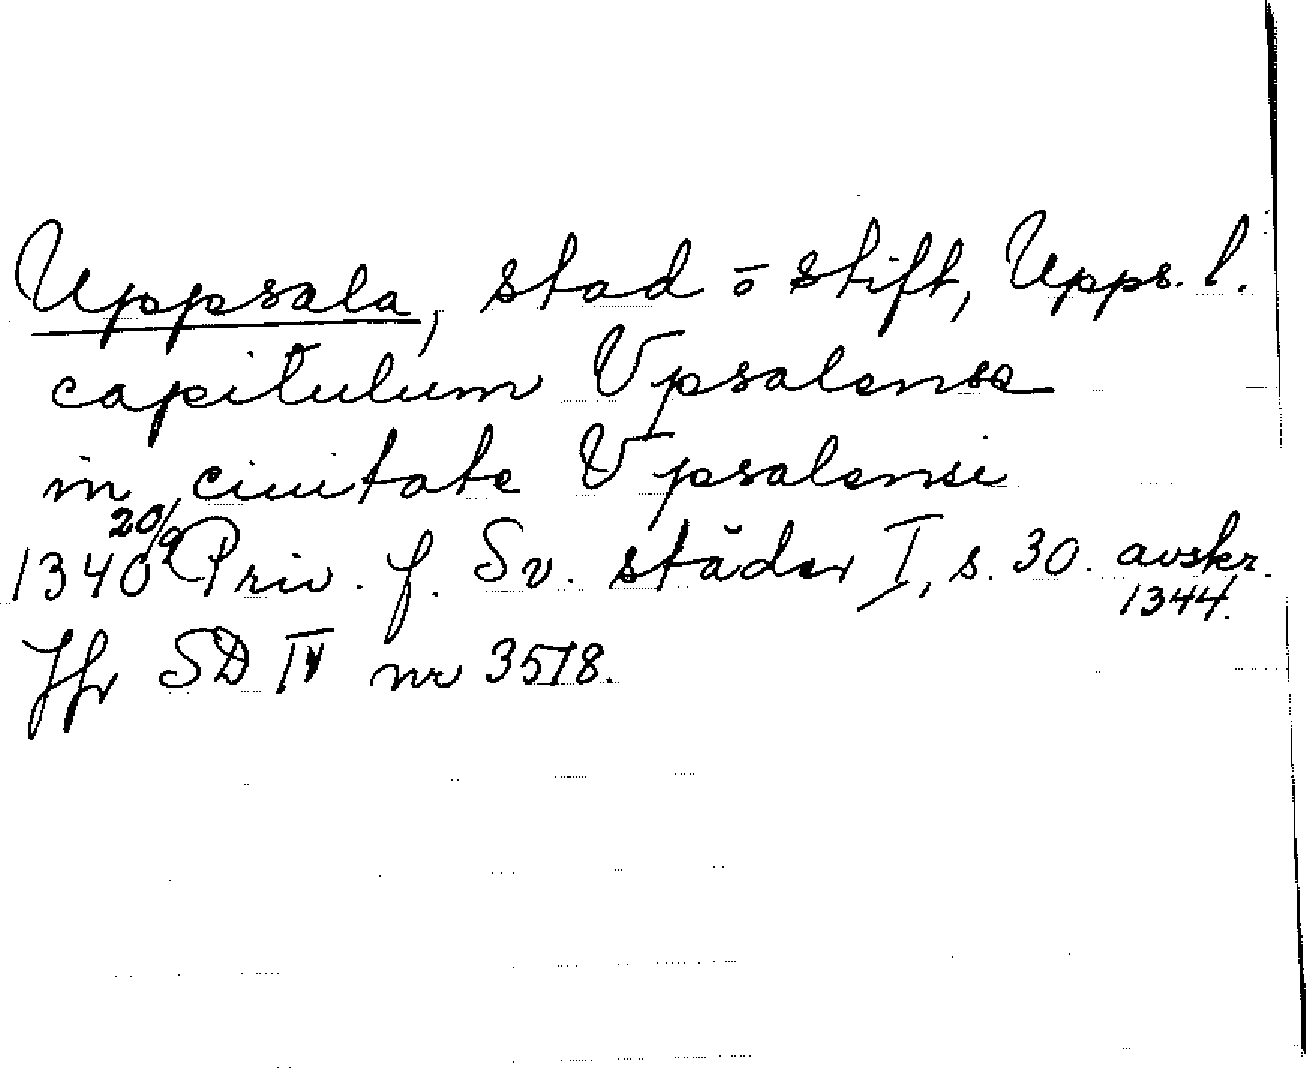 Uppsala, stad o stift, Upps. l.
capitulum Vpsalense
in ciuitate Vpsalensi
1340 20/9 Priv. f. Sv. städer I, s. 30. avskr. 1344.
Jfr SD IV nr 3518.